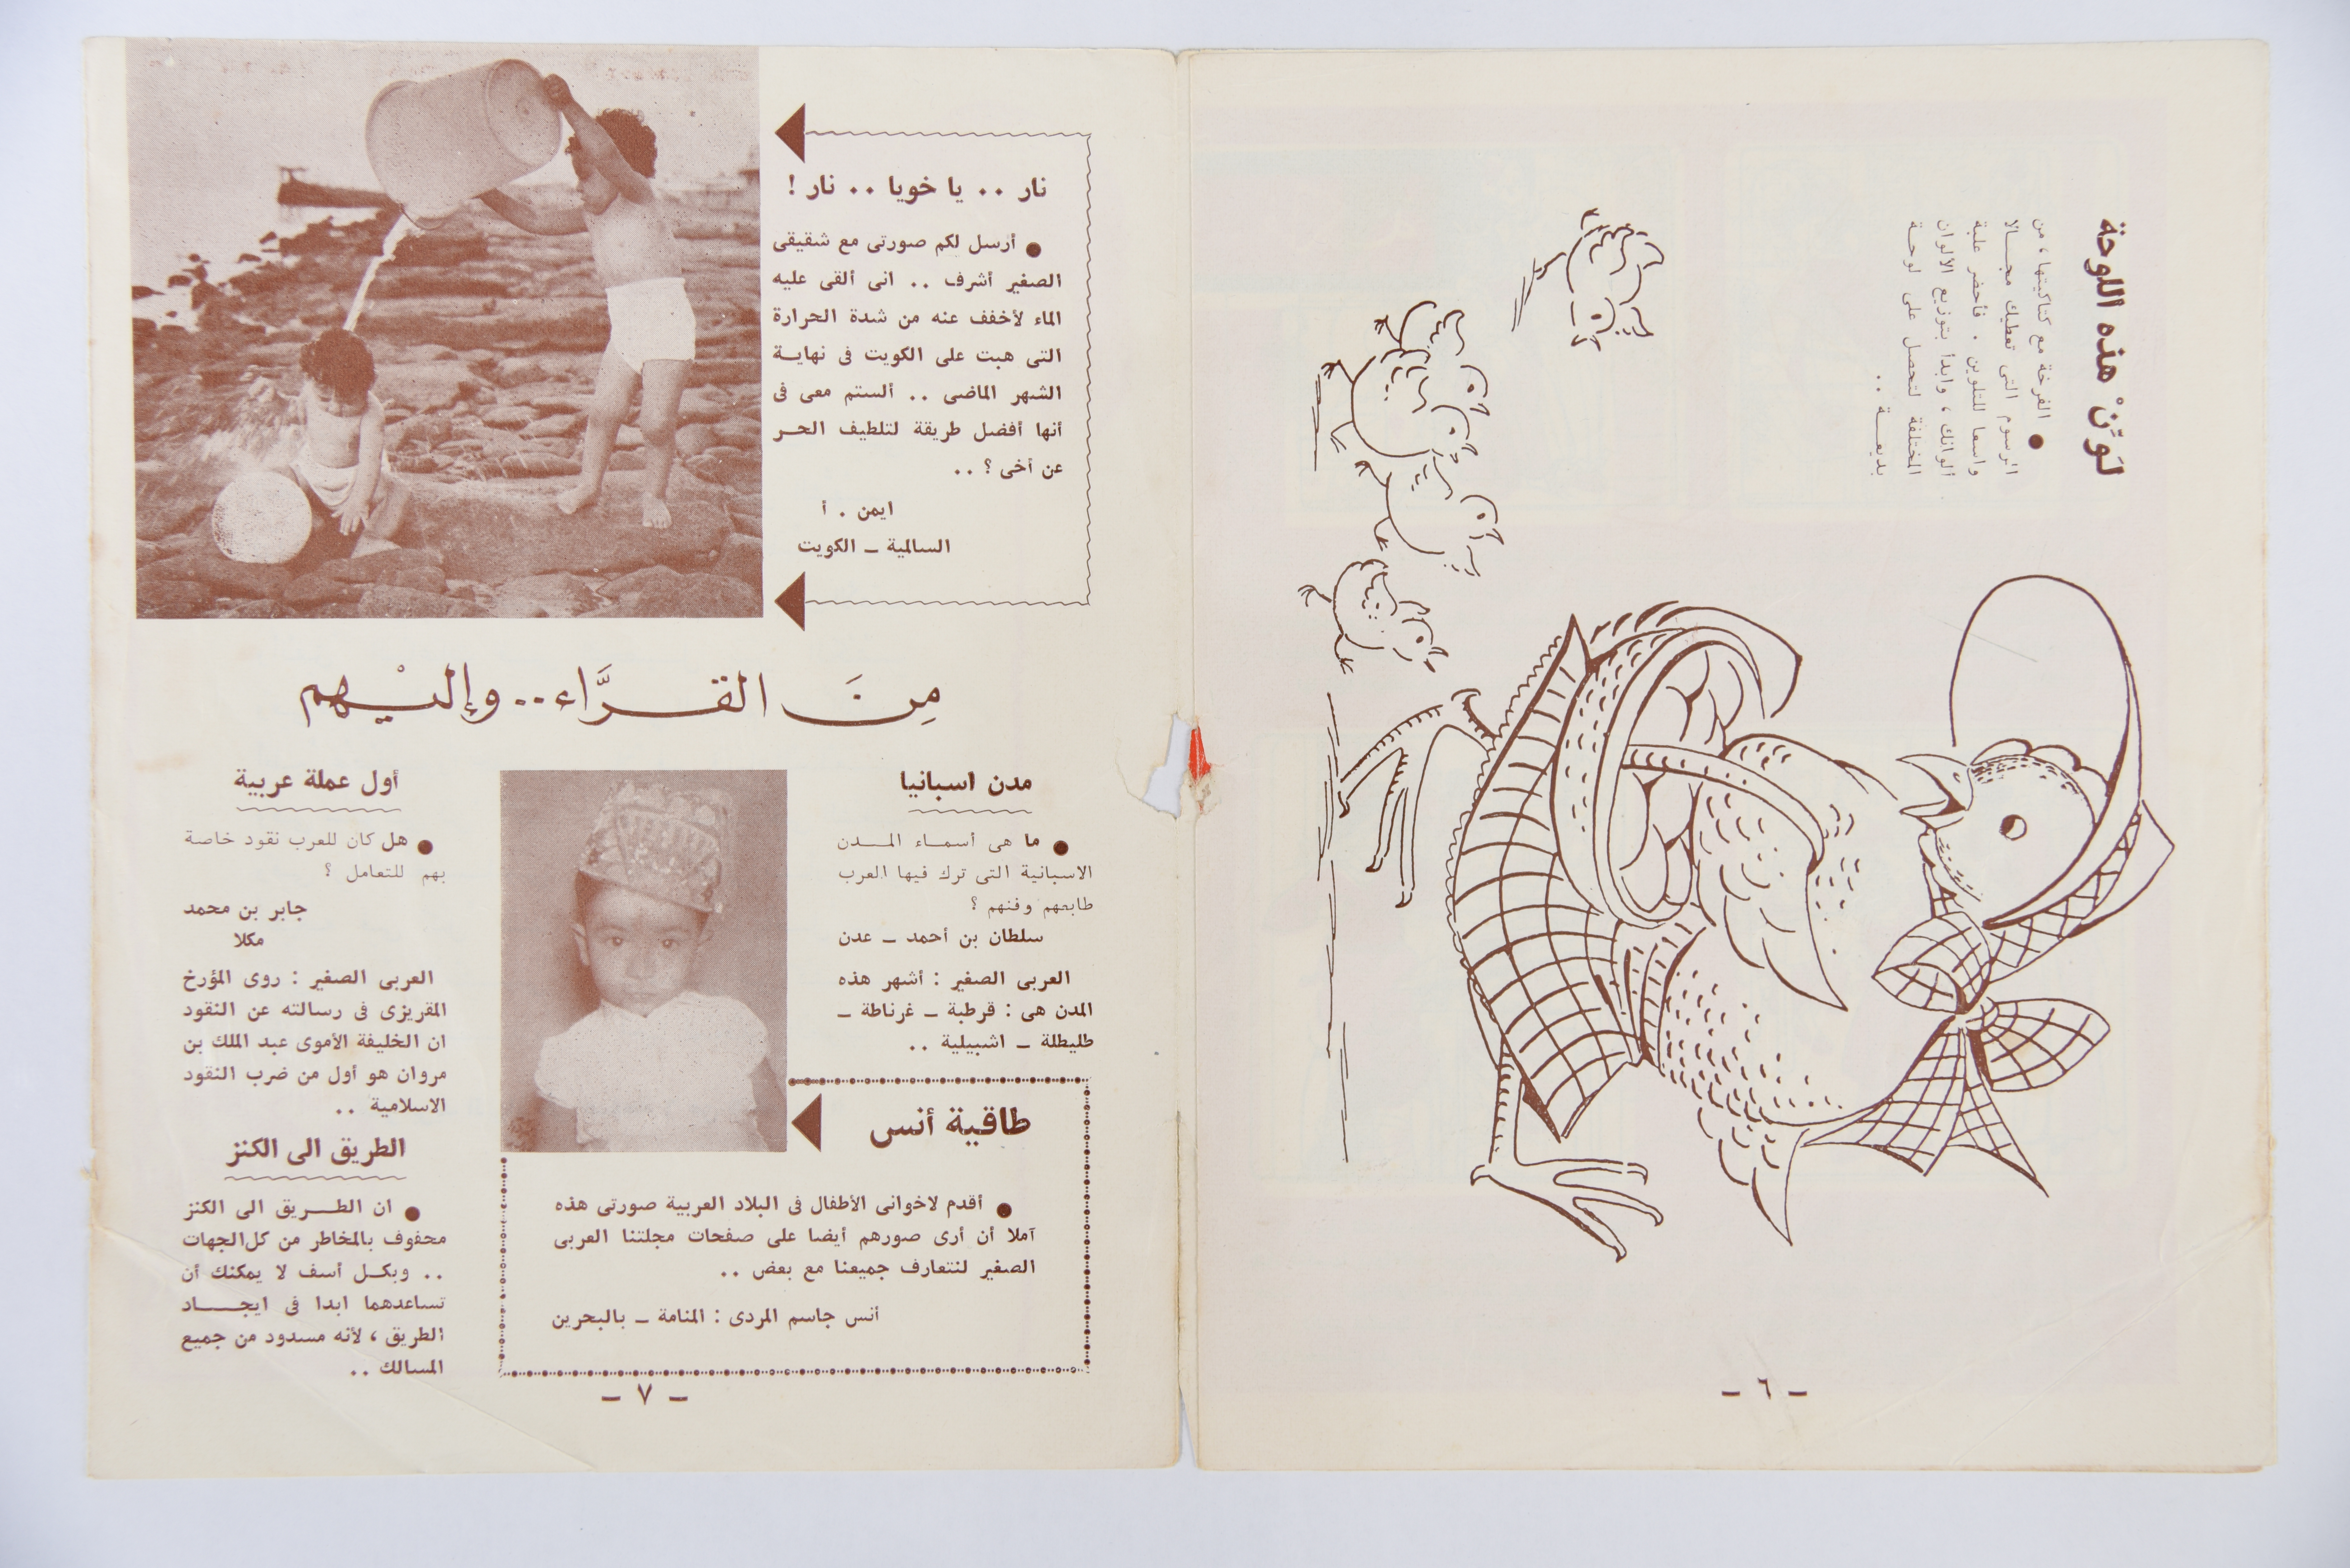 لَوِّنْ هذه اللوحة
● الفرخة مع كتاكيتها ، من
الرسوم التى تعطيك مجــالا
واسعا للتلوين . فأحضر علبة
ألوانك ، وابدأ بتوزيع الألوان
المختلفة لتحصل على لوحــة
بديعـــة ..
- ٦ -
نار .. يا خويا .. نار !
● أرسل لكم صورتى مع شقيقى
الصغير أشرف .. انى ألقى عليه
الماء لأخفف عنه من شدة الحرارة
التى هبت على الكويت فى نهايــة
الشهر الماضى .. ألستم معى فى
أنها أفضل طريقة لتلطيف الحـر
عن أخى ؟ ..
ايمن . أ
السالمية ـ الكويت
مِنَ القــرَّاء .. وإليْـهم
مدن اسبانيا
● ما هى أسمـاء المــدن
الاسبانية التى ترك فيها العرب
طابعهم وفنهم ؟
سلطان بن أحمد ـ عدن
العربى الصغير : أشهر هذه
المدن هى : قرطبة ـ غرناطة ـ
طليطلة ـ اشبيلية ..
طاقية أنس
● أقدم لاخوانى الأطفال فى البلاد العربية صورتى هذه
آملا أن أرى صورهم أيضا على صفحات مجلتنا العربى
الصغير لنتعارف جميعنا مع بعض ..
أنس جاسم المردى : المنامة ـ بالبحرين
أول عملة عربية
● هل كان للعرب نقود خاصة
بهم للتعامل ؟
جابر بن محمد
مكلا
العربى الصغير : روى المؤرخ
المقريزى فى رسالته عن النقود
ان الخليفة الأموى عبد الملك بن
مروان هو أول من ضرب النقود
الاسلامية ..
الطريق الى الكنز
● ان الطــريق الى الكنز
محفوف بالمخاطر من كل الجهات
.. وبكـل أسف لا يمكنك أن
تساعدهما ابدا فى ايجــــاد
الطريق ، لأنه مسدود من جميع
المسالك ..
- ٧ -